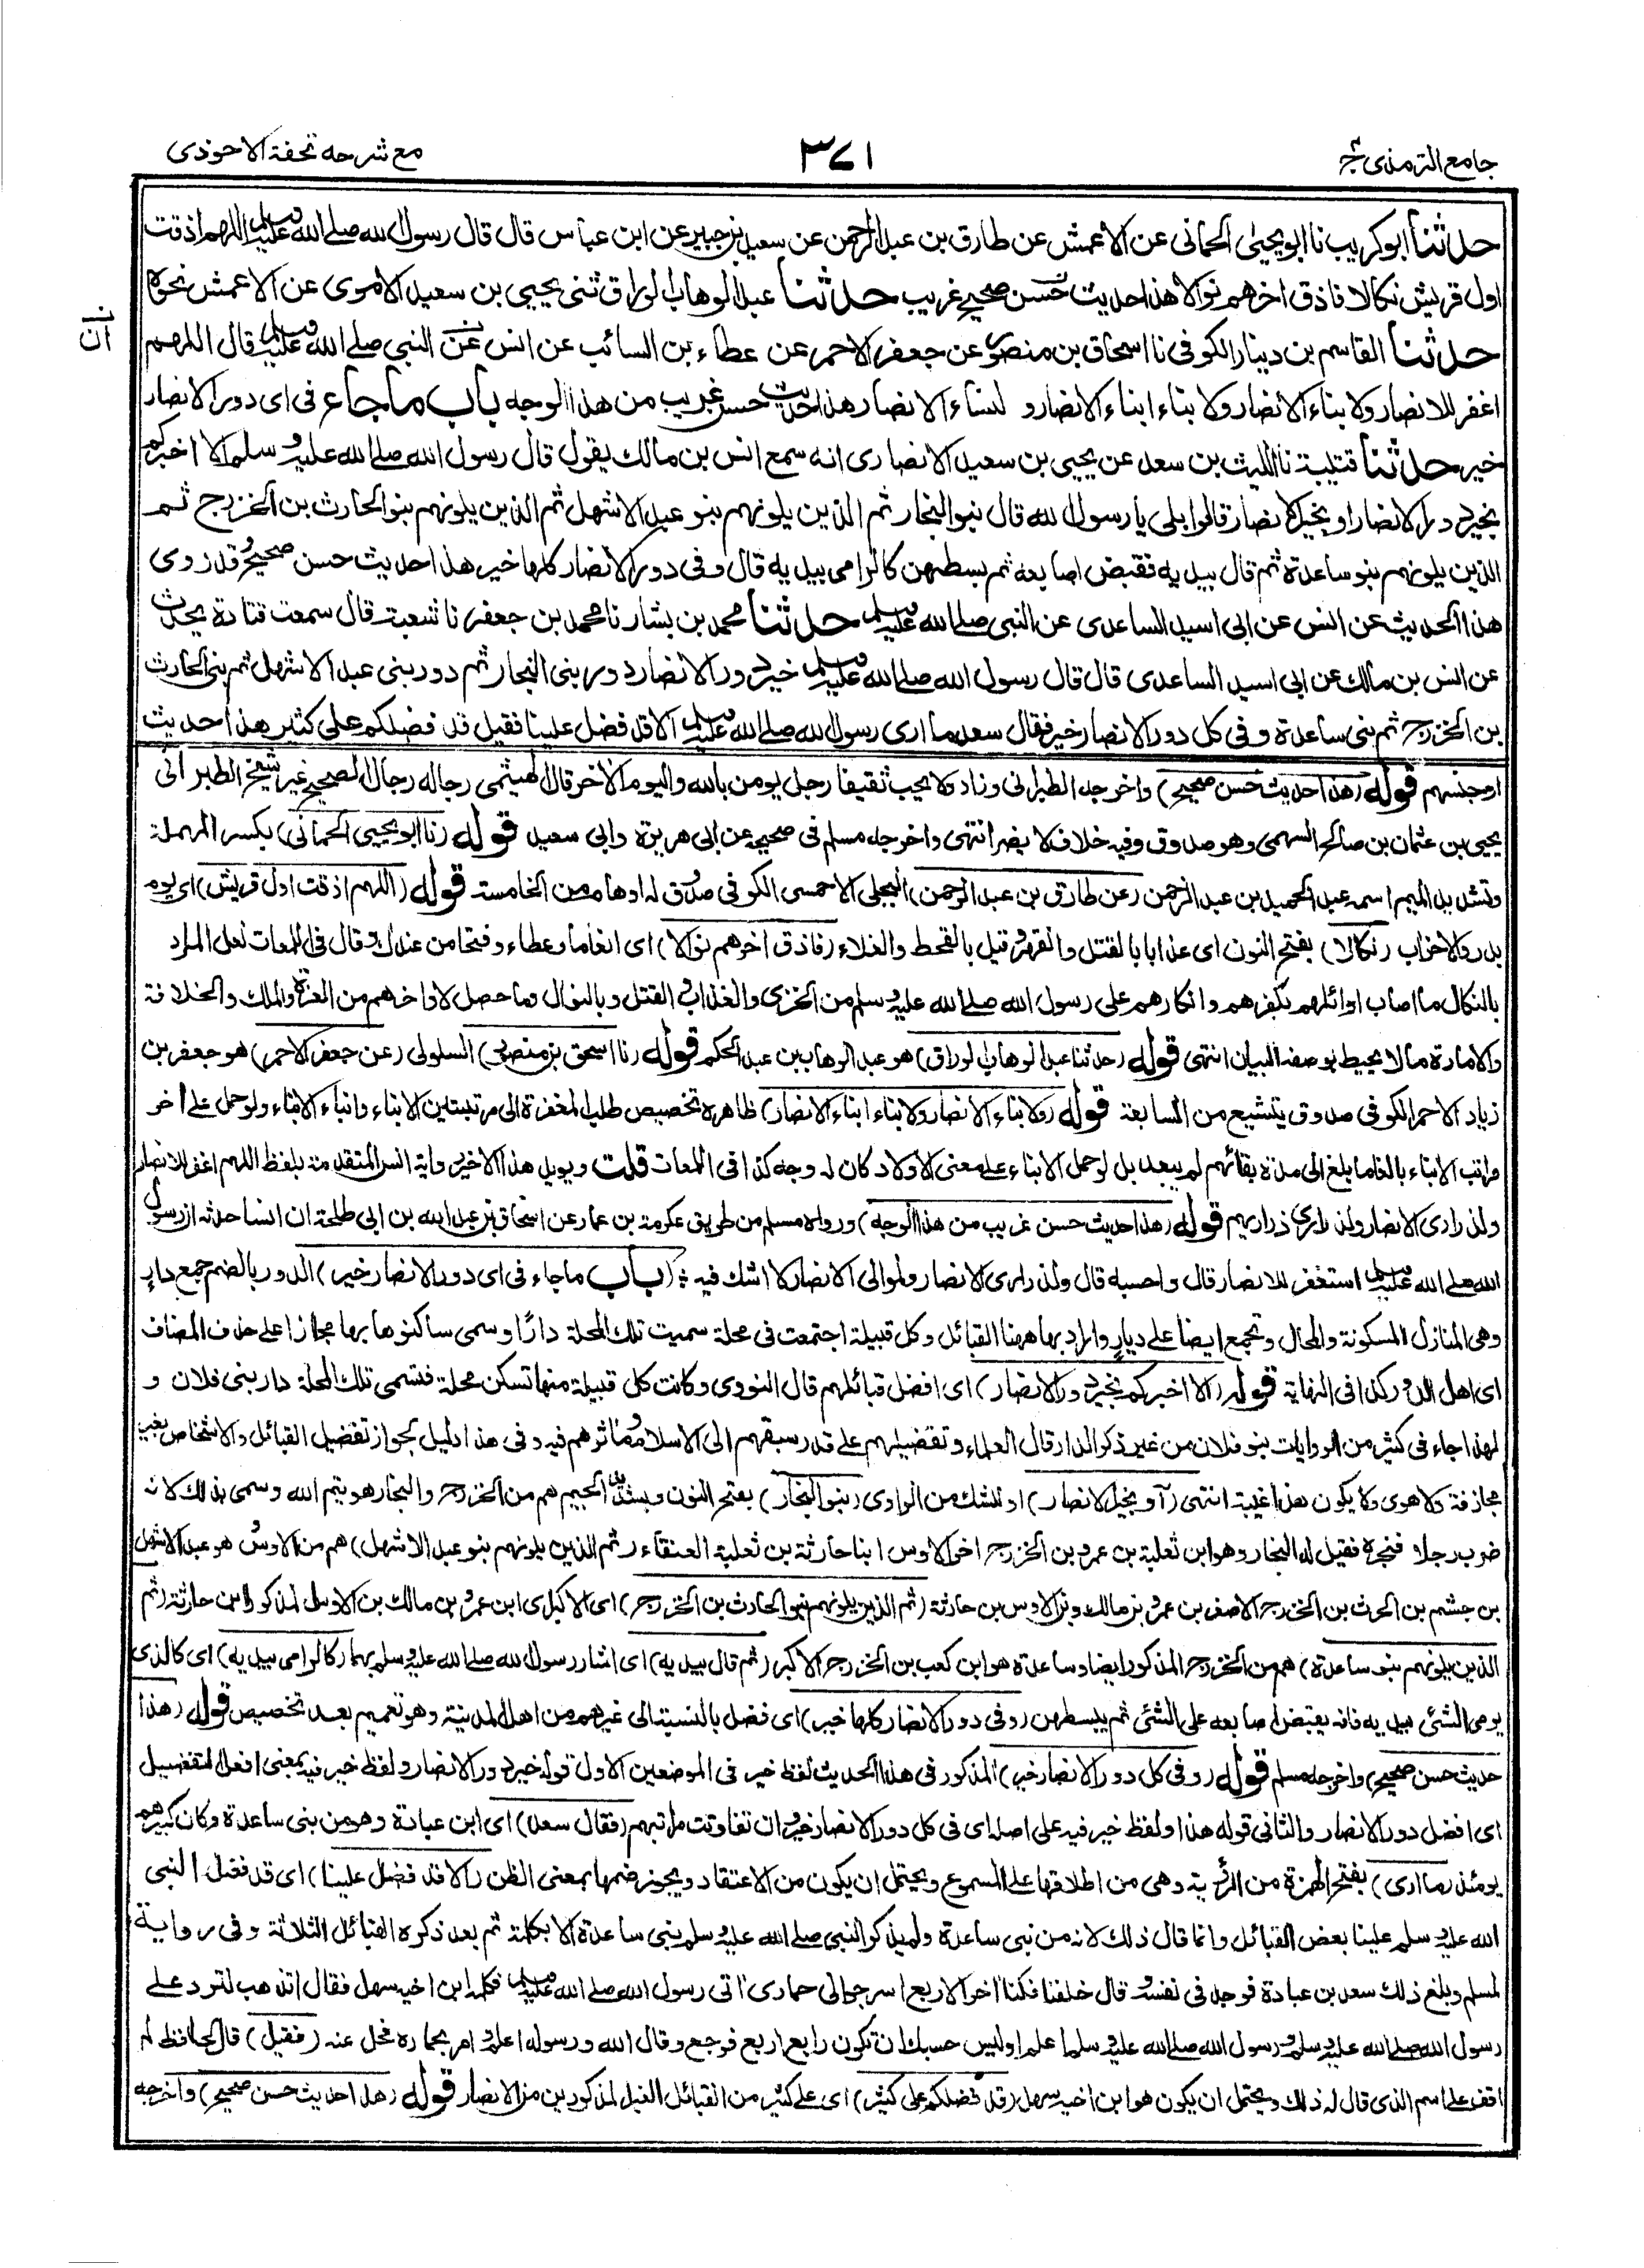 جامع الترمذي ج ٤
٣٧١
مع شرحه تحفة الاحوذي
حدثنا ابو كريب نا ابو يحيى الحماني عن الاعمش عن طارق بن عبد الرحمن عن سعيد بن جبير عن ابن عباس قال قال رسول الله صلى الله عليه وسلم اللهم اذقت
اول قريش نكالا فاذق اخرهم نوالا هذا حديث حسن صحيح غريب حدثنا عبد الوهاب الوراق ثني يحيى بن سعيد الاموي عن الاعمش نحوه
حدثنا القاسم بن دينار الكوفي نا اسحاق بن منصور عن جعفر الاحمر عن عطاء بن السائب عن انس عن النبي صلى الله عليه وسلم قال اللهم
ان
اغفر للانصار ولابناء الانصار ولابناء ابناء الانصار ولنساء الانصار هذا حديث حسن غريب من هذا الوجه باب ما جاء في اي دور الانصار
خير حدثنا قتيبة نا الليث بن سعد عن يحيى بن سعيد الانصاري انه سمع انس بن مالك يقول قال رسول الله صلى الله عليه وسلم الا اخبركم
بخير دور الانصار او بخير الانصار قالوا بلى يا رسول الله قال بنو النجار ثم الذين يلونهم بنو عبد الاشهل ثم الذين يلونهم بنو الحارث بن الخزرج ثم
الذين يلونهم بنو ساعدة ثم قال بيديه فقبض اصابعه ثم بسطهن كالرامي بيديه قال وفي دور الانصار كلها خير هذا حديث حسن صحيح وقد روي
هذا الحديث عن انس عن ابي اسيد الساعدي عن النبي صلى الله عليه وسلم حدثنا محمد بن بشار نا محمد بن جعفر نا شعبة قال سمعت قتادة يحدث
عن انس بن مالك عن ابي اسيد الساعدي قال قال رسول الله صلى الله عليه وسلم خير دور الانصار دور بني النجار ثم دور بني عبد الاشهل ثم بني الحارث
بن الخزرج ثم بني ساعدة وفي كل دور الانصار خير فقال سعد ما ارى رسول الله صلى الله عليه وسلم الا قد فضل علينا فقيل قد فضلكم على كثير هذا حديث
او جنسهم قوله (هذا حديث حسن صحيح) واخرجه الطبراني وزاد ولا يحب ثقيفا رجل يومن بالله واليوم الاخر قال الهيثمي رجاله رجال الصحيح غير شيخ الطبراني
يحيى بن عثمان بن صالح السهمي وهو صدوق وفيه خلاف لا يضر انتهى واخرجه مسلم في صحيحه عن ابي هريرة وابي سعيد قوله (نا ابو يحيى الحماني) بكسر المهملة
وتشديد الميم اسمه عبد الحميد بن عبد الرحمن (عن طارق بن عبد الرحمن) البجلي الاحمسي الكوفي صدوق له اوهام من الخامسة قوله (اللهم اذقت اول قريش) اي يوم
بدر والاحزاب (نكالا) بفتح النون اي عذابا بالقتل والقهر وقيل بالقحط والغلاء (فاذق اخرهم نوالا) اي انعاما وعطاء وفتحا من عندك وقال في اللمعات لعل المراد
بالنكال ما اصاب اوائلهم بكفرهم وانكارهم على رسول الله صلى الله عليه وسلم من الخزي والعذاب والقتل وبالنوال وما حصل لاواخرهم من العزة والملك والخلافة
والامارة مالا يحيط بوصفه البيان انتهى قوله (حدثنا عبد الوهاب الوراق) هو عبد الوهاب بن عبد الحكم قوله (نا اسحق بن منصور) السلولي (عن جعفر الاحمر) هو جعفر بن
زياد الاحمر الكوفي صدوق يتشيع من السابعة قوله (ولابناء الانصار ولابناء ابناء الانصار) ظاهره تخصيص طلب المغفرة الى مرتبتين الابناء وابناء الابناء ولو حمل على اخر
مراتب الابناء بالغا ما بلغ الى مدة بقائهم لم يبعد بل لو حمل الابناء على معنى الاولاد كان له وجه كذا في اللمعات قلت ويويد هذا الاخير رواية انس المتقدمة بلفظ اللهم اغفر للانصار
ولذراري الانصار ولذراري ذراريهم قوله (هذا حديث حسن غريب من هذا الوجه) ورواه مسلم من طريق عكرمة بن عمار عن اسحاق بن عبد الله بن ابي طلحة ان انسا حدثه ان رسول
الله صلى الله عليه وسلم استغفر للانصار قال واحسبه قال ولذراري الانصار ولموالي الانصار لا اشك فيه (باب ما جاء في اي دور الانصار خير) الدور بالضم جمع دار
وهي المنازل المسكونة والمحال وتجمع ايضا على ديار واراد بها ههنا القبائل وكل قبيلة اجتمعت في محلة سميت تلك المحلة دارا وسمي ساكنوها بها مجازا على حذف المضاف
اي اهل الدور كذا في النهاية قوله (الا اخبركم بخير دور الانصار) اي افضل قبائلهم قال النووي وكانت كل قبيلة منها تسكن محلة فتسمى تلك المحلة دار بني فلان و
لهذا جاء في كثير من الروايات بنو فلان من غير ذكر الدار قال العلماء وتفضيلهم على قدر سبقهم الى الاسلام ومآثرهم فيه وفي هذا دليل لجواز تفضيل القبائل والاشخاص بغير
مجازفة ولا هوى ولا يكون هذا غيبة انتهى (او بخير الانصار) او للشك من الراوي (بنو النجار) بفتح النون وبتشديد الجيم هم من الخزرج والنجار هو تيم الله وسمي بذلك لانه
ضرب رجلا فنجره فقيل له النجار وهو ابن ثعلبة بن عمرو بن الخزرج اخو الاوس ابنا حارثة بن ثعلبة العنقاء (ثم الذين يلونهم بنو عبد الاشهل) هم من الاوس وهو عبد الاشهل
بن جشم بن الحرث بن الخزرج الاصغر بن عمرو بن مالك بن الاوس بن حارثة (ثم الذين يلونهم بنو الحارث بن الخزرج) اي الاكبر اي ابن عمرو بن مالك بن الاوس المذكور ابن حارثة (ثم
الذين يلونهم بنو ساعدة) هم من الخزرج المذكور ايضا وساعدة هو ابن كعب بن الخزرج الاكبر (ثم قال بيديه) اي اشار رسول الله صلى الله عليه وسلم بهما (كالرامي بيديه) اي كالذي
يرمي الشئ بيديه فانه يقبض اصابعه على الشئ ثم يبسطهن (وفي دور الانصار كلها خير) اي فضل بالنسبة الى غيرهم من اهل المدينة وهو تعميم بعد تخصيص قوله (هذا
حديث حسن صحيح) واخرجه مسلم قوله (وفي كل دور الانصار خير) المذكور في هذا الحديث لفظ خير في الموضعين الاول قوله خير دور الانصار ولفظ خير فيه بمعنى افعل التفضيل
اي افضل دور الانصار والثاني قوله هذا ولفظ خير فيه على اصله اي في كل دور الانصار خير وان تفاوتت مراتبهم (فقال سعد) اي ابن عبادة وهو من بني ساعدة وكان كبيرهم
يومئذ (ما ارى) بفتح الهمزة من الرؤية وهي من اطلاقها على المسموع ويحتمل ان يكون من الاعتقاد ويجوز ضمها بمعنى الظن (الا قد فضل علينا) اي قد فضل النبي
الله عليه وسلم علينا بعض القبائل وانما قال ذلك لانه من بني ساعدة ولم يذكر النبي صلى الله عليه وسلم بني ساعدة الا بكلمة ثم بعد ذكره القبائل الثلاثة وفي رواية
لمسلم وبلغ ذلك سعد بن عبادة فوجد في نفسه وقال خلفنا فكنا اخر الاربع اسرجوا لي حماري اتي رسول الله صلى الله عليه وسلم فكلمه ابن اخيه سهل فقال اتذهب لترد على
رسول الله صلى الله عليه وسلم ورسول الله صلى الله عليه وسلم اعلم اوليس حسبك ان تكون رابع اربع فرجع وقال الله ورسوله اعلم وامر بحماره فحل عنه (فقيل) قال الحافظ لم
اقف على اسم الذي قال له ذلك ويحتمل ان يكون هو ابن اخيه سهل (قد فضلكم على كثير) اي على كثير من القبائل الغير المذكورين من الانصار قوله (هذا حديث حسن صحيح) واخرجه